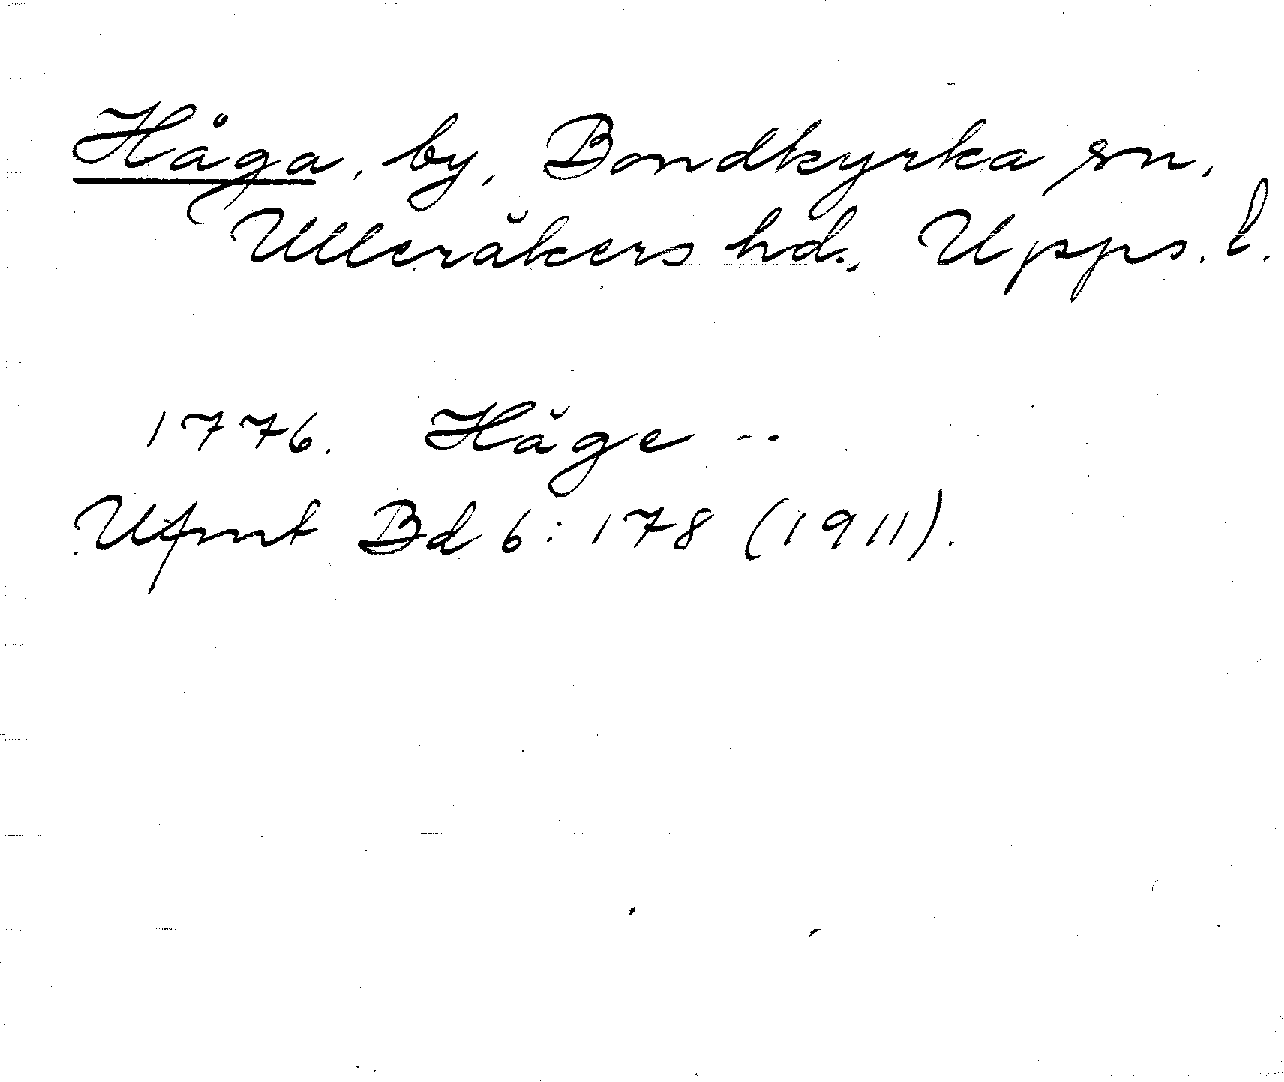 Håga, by, Bondkyrka sn,
Ulleråkers hd., Upps. l.
1776. Håge --
Ufmt Bd 6: 178 (1911).